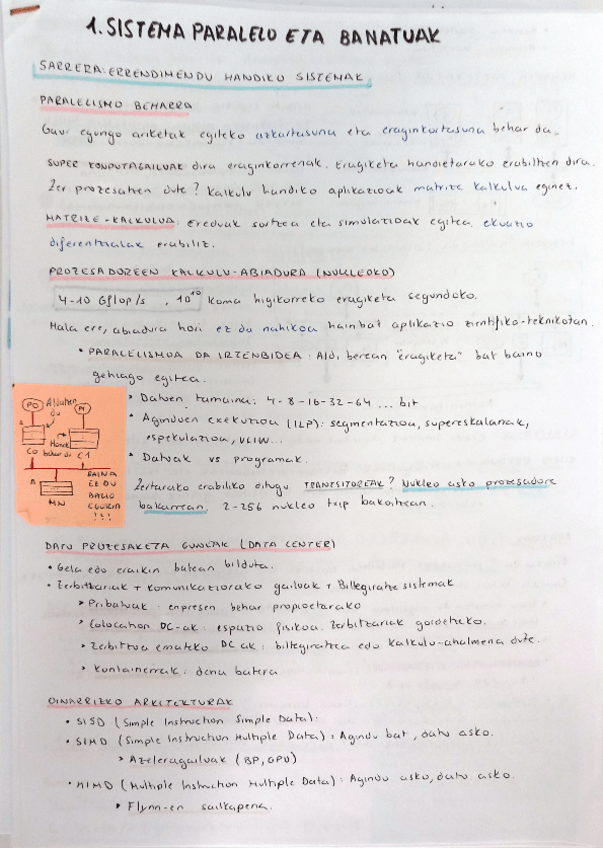 1. SISTEMA PARALELO ETA BANATUAK
SARRERA: ERRENDIMENDU HANDIKO SISTEMAK
PARALELISMO BEHARRA
Gaur egungo ariketak egiteko azkartasuna eta eraginkortasuna behar da.
SUPER KONPUTAGAILUAK dira eraginkorrenak. Eragiketa handietarako erabiltzen dira.
Zer prozesatzen dute? Kalkulu handiko aplikazioak matrize kalkulua eginez.
MATRIZE-KALKULUA: Ereduak sortzea eta simulazioak egitea ekuazio
diferentzialak erabiliz.
PROZESADOREEN KALKULU-ABIADURA (NUKLEOKO)
4-10 Gflop/s, 10¹⁰ koma higikorreko eragiketa segundoko.
Hala ere, abiadura hori ez da nahikoa hainbat aplikazio zientifiko-teknikotan.
• PARALELISMOA DA IRTENBIDEA: Aldi berean "eragiketa" bat baino
gehiago egitea.
> Datuen tamaina: 4-8-16-32-64 ... bit
• Aginduen exekuzioa (ILP): segmentazioa, supereskalarrak,
espekulazioa, VLIW...
• Datuak vs programak.
Zertarako erabiliko ditugu TRANSISTOREAK? Nukleo asko prozesadore
bakarrean, 2-256 nukleo txip bakoitzean.
P0 Aldatzen du P1
Honek behar du
C0 C1
BAINA
EZ DU
BALIO
CEUKIN
!!!
MN
DATU PROZESAKETA GUNEAK (DATA CENTER)
• Gela edo eraikin batean bilduta.
• Zerbitzariak + komunikaziorako gailuak + Biltegiratze sistemak
> Pribatuak: enpresen behar propioetarako
> Colocation DC-ak: espazio fisikoa zerbitzariak gordetzeko.
> Zerbitzua emateko DC ak: biltegiratzea edo kalkulu-ahalmena dute.
> Kontainerrak: dena batera
OINARRIZKO ARKITEKTURAK
• SISD (Simple Instruction Simple Data):
• SIMD (Simple Instruction Multiple Data): Agindu bat, datu asko.
> Azeleragailuak (BP, GPU)
• MIMD (Multiple Instruction Multiple Data): Agindu asko, datu asko.
> Flynn-en sailkapena.